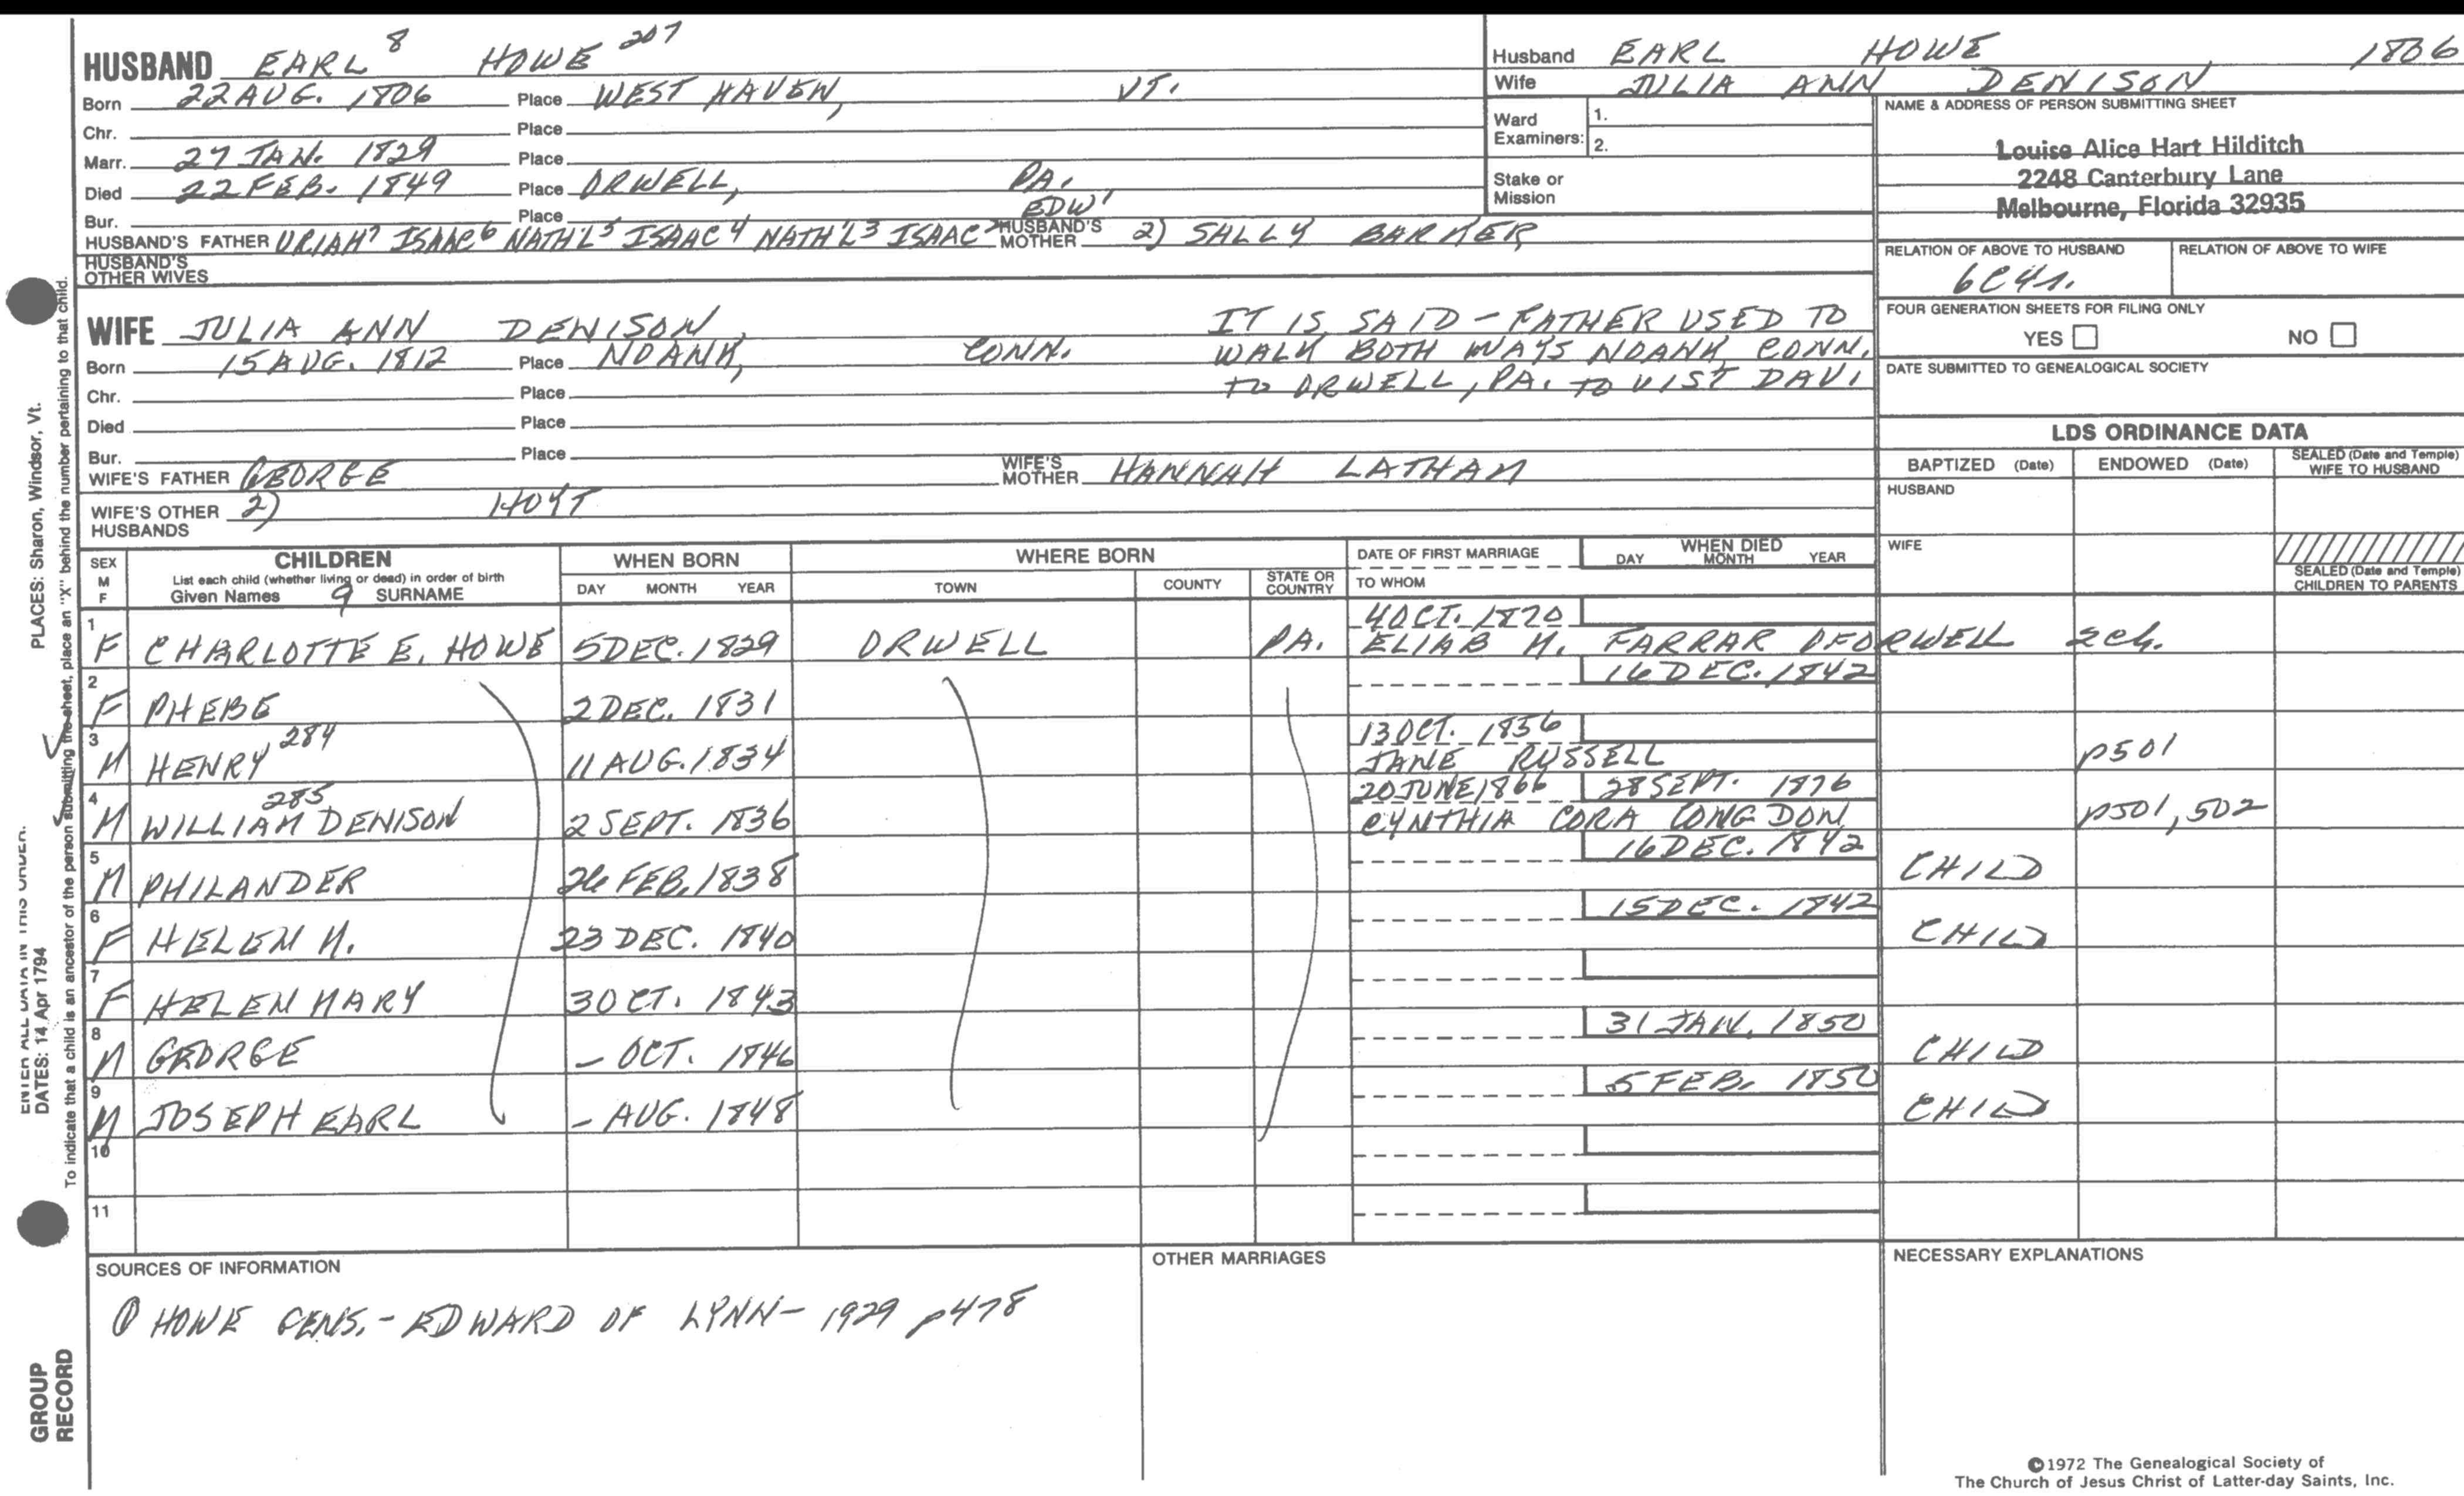 HUSBAND EARL 8 HOWE 207
Born 22 AUG. 1806 Place WEST HAVEN, VT.
Chr. Place
Marr. 27 JAN. 1829 Place
Died 22 FEB. 1849 Place ORWELL, PA.
Bur. Place EDW'
HUSBAND'S FATHER URIAH7 ISAAC6 NATH'L5 ISAAC4 NATH'L3 ISAAC2 HUSBAND'S MOTHER 2) SALLY BARKER
HUSBAND'S
OTHER WIVES
Husband EARL HOWE 1806
Wife JULIA ANN DENISON
Ward Examiners: 1.
2.
Stake or
Mission
NAME & ADDRESS OF PERSON SUBMITTING SHEET
Louise Alice Hart Hilditch
2248 Canterbury Lane
Melbourne, Florida 32935
RELATION OF ABOVE TO HUSBAND RELATION OF ABOVE TO WIFE
6C4r.
FOUR GENERATION SHEETS FOR FILING ONLY
YES NO
DATE SUBMITTED TO GENEALOGICAL SOCIETY
WIFE JULIA ANN DENISON
Born 15 AUG. 1812 Place NOANK, CONN.
Chr. Place
Died Place
Bur. Place
IT IS SAID - FATHER USED TO
WALK BOTH WAYS NOANK, CONN.
TO ORWELL, PA. TO VIST DAU.
WIFE'S FATHER GEORGE WIFE'S MOTHER HANNAH LATHAM
WIFE'S OTHER HUSBANDS 2) HOYT
LDS ORDINANCE DATA
BAPTIZED (Date) ENDOWED (Date) SEALED (Date and Temple) WIFE TO HUSBAND
HUSBAND
WIFE
SEALED (Date and Temple)
CHILDREN TO PARENTS
SEX M F CHILDREN WHEN BORN WHERE BORN DATE OF FIRST MARRIAGE WHEN DIED
List each child (whether living or dead) in order of birth
Given Names 9 SURNAME DAY MONTH YEAR TOWN COUNTY STATE OR COUNTRY TO WHOM DAY MONTH YEAR
4 OCT. 1870
1 F CHARLOTTE E. HOWE 5 DEC. 1829 ORWELL PA. ELIAB M. FARRAR OF ORWELL 2ch.
16 DEC. 1842
2 F PHEBE 2 DEC. 1831
13 OCT. 1856
3 M HENRY 284 11 AUG. 1834 JANE RUSSELL p501
20 JUNE 1866 28 SEPT. 1876
4 M WILLIAM DENISON 285 2 SEPT. 1836 CYNTHIA CORA CONGDON p501, 502
16 DEC. 1842
5 M PHILANDER 26 FEB. 1838 CHILD
15 DEC. 1842
6 F HELEN M. 23 DEC. 1840 CHILD
7 F HELEN MARY 3 OCT. 1843
31 JAN. 1850
8 M GEORGE - OCT. 1846 CHILD
5 FEB. 1850
9 M JOSEPH EARL - AUG. 1848 CHILD
10
11
SOURCES OF INFORMATION OTHER MARRIAGES NECESSARY EXPLANATIONS
① HOWE GENS. - EDWARD OF LYNN - 1929 p478
©1972 The Genealogical Society of
The Church of Jesus Christ of Latter-day Saints, Inc.
PLACES: Sharon, Windsor, Vt.
DATES: 14 Apr 1794
To indicate that a child is an ancestor of the person submitting the sheet, place an "X" behind the number pertaining to that child.
GROUP
RECORD